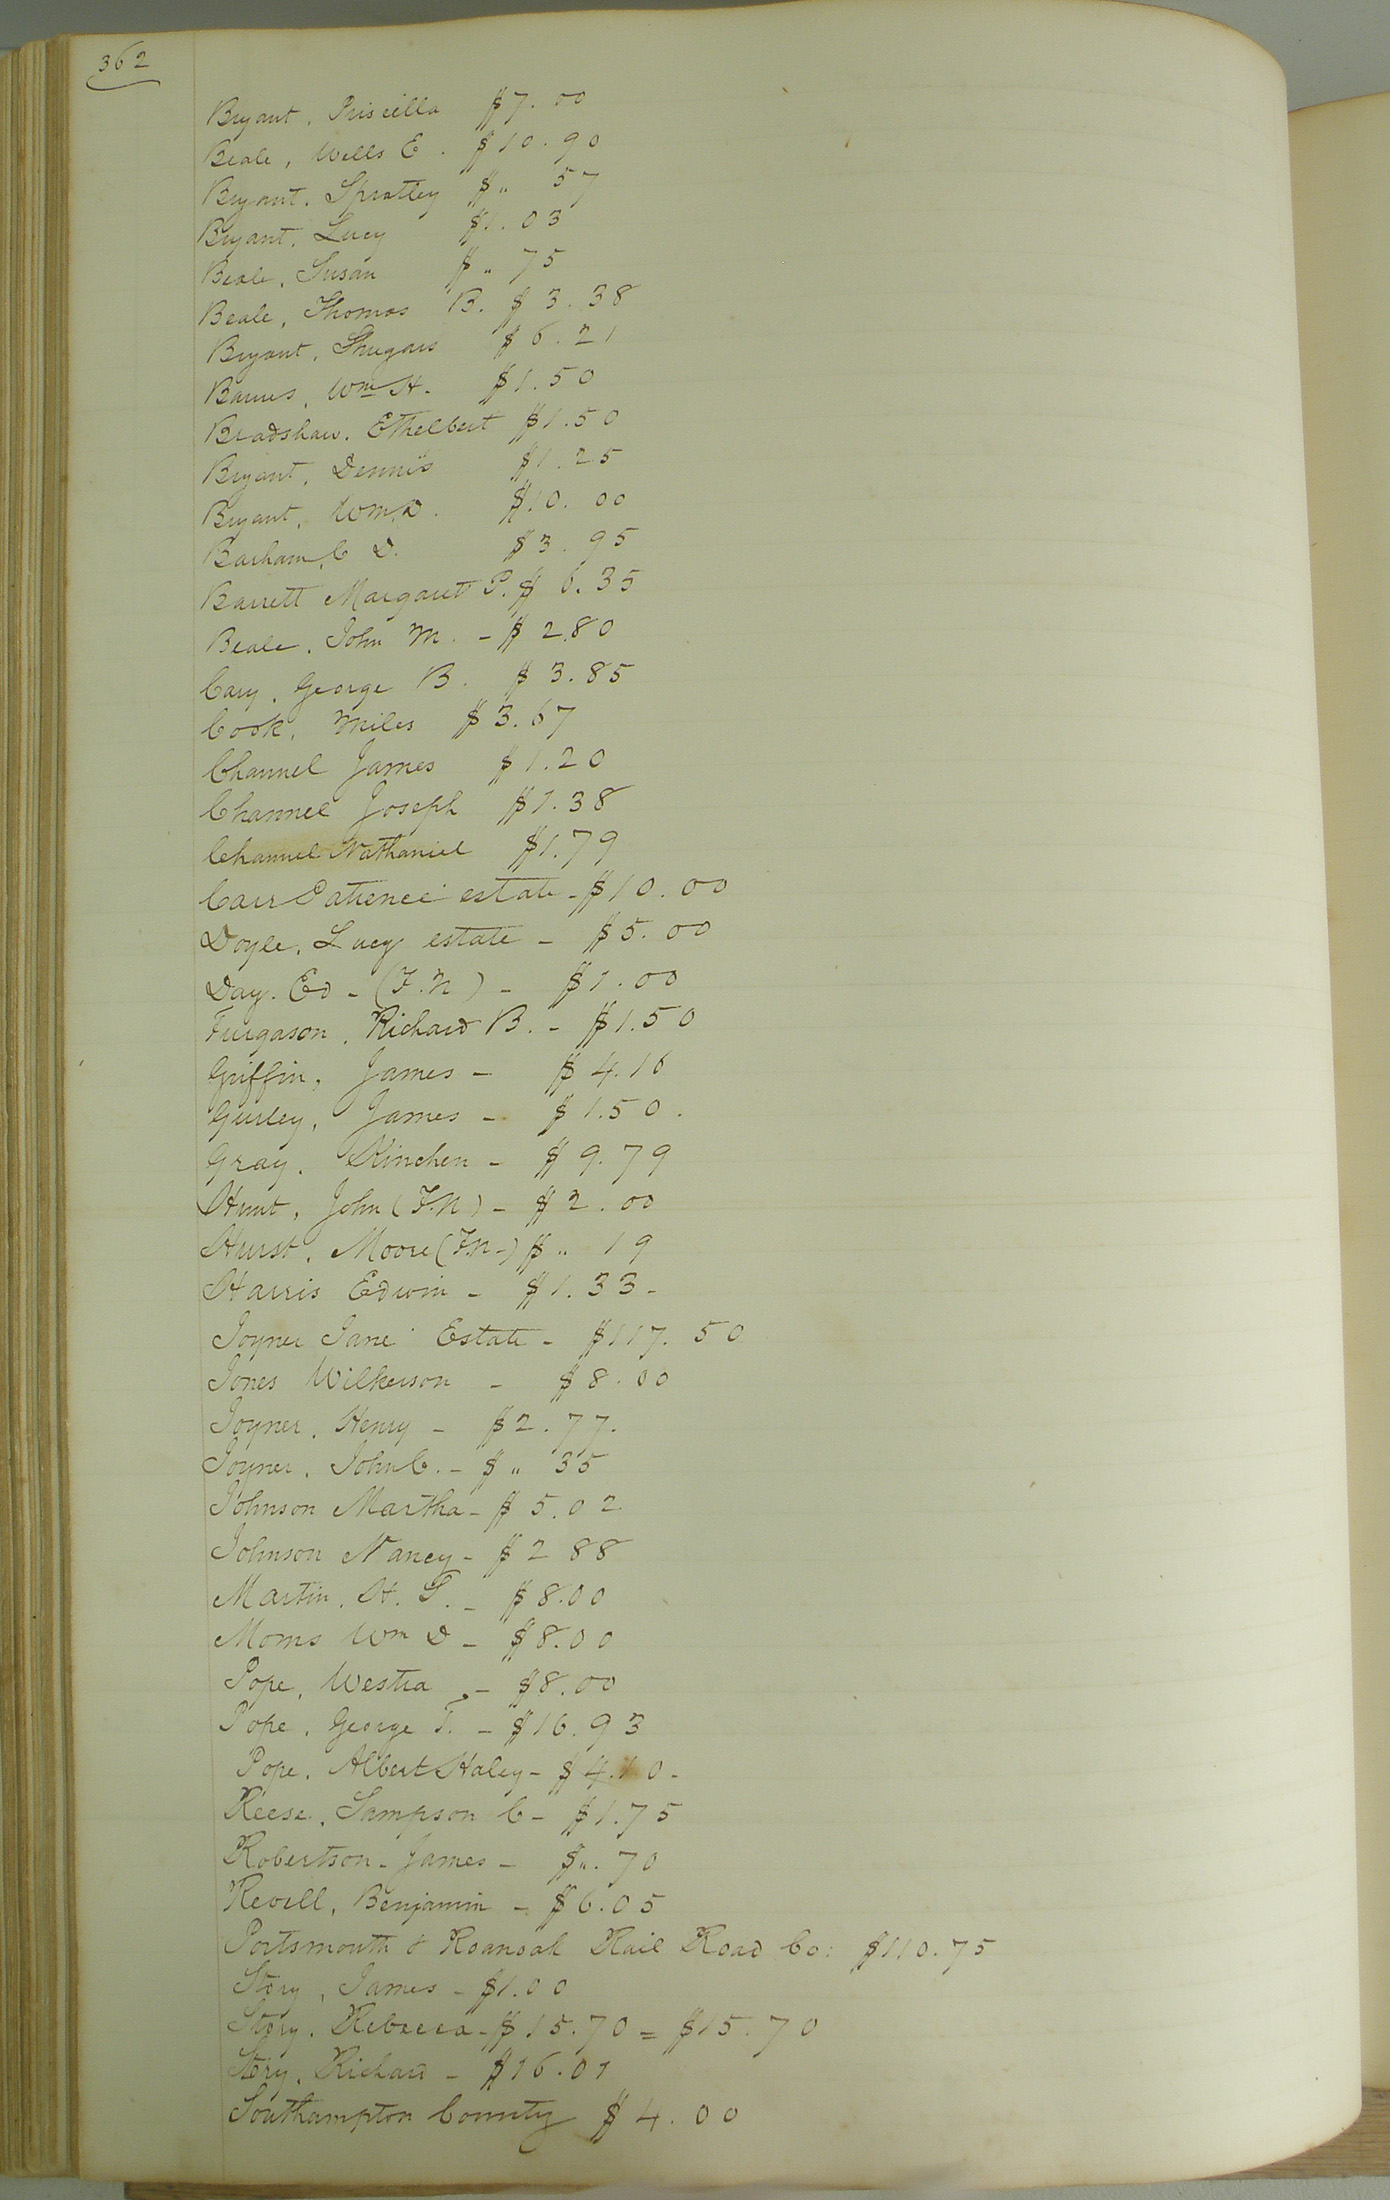 362
Bryant, Priscilla $7.00
Beale, Wills E. $10.90
Bryant, Spratley $ " 57
Bryant, Lucy $1.03
Beale, Susan $ " 75
Beale, Thomas B. $3.38
Bryant, Shugars $6.21
Barnes, Wm H. $1.50
Bradshaw, Ethelbert $1.50
Bryant, Dennis $1.25
Bryant, Wm D. $10.00
Barham, C D. $3.95
Barrett Margaret P. $6.35
Beale, John M. - $2.80
Cary, George B. $3.85
Cook, Miles $3.67
Channel James $1.20
Channel Joseph $1.38
Channel Nathaniel $1.79
Carr Patience estate - $10.00
Doyle, Lucy estate - $5.00
Day. Ed - (F.N) - $1.00
Furgason, Richard B. - $1.50
Griffin, James - $4.16
Gurley, James - $1.50.
Gray, Kinchen - $9.79
Hunt, John (F.N) - $2.00
Hurst, Moore (F.N-) $ " 19
Harris Edwin - $1.33-
Joyner Jane Estate - $117.50
Jones Wilkerson - $8.00
Joyner, Henry - $2.77.
Joyner, John C. - $ " 35
Johnson Martha - $5.02
Johnson Nancy - $2 88
Martin, H. T. - $8.00
Morris Wm D - $8.00
Pope, Westra - $8.00
Pope, George T. - $16.93
Pope, Albert Haley - $4.10-
Reese, Sampson C - $1.75
Robertson - James - $ ". 70
Revill, Benjamin - $6.05
Portsmouth & Roanoak Rail Road Co: $110.75
Story, James - $1.00
Story, Rebecca - $15.70 = $15.70
Story, Richard - $16.01
Southampton County $4.00